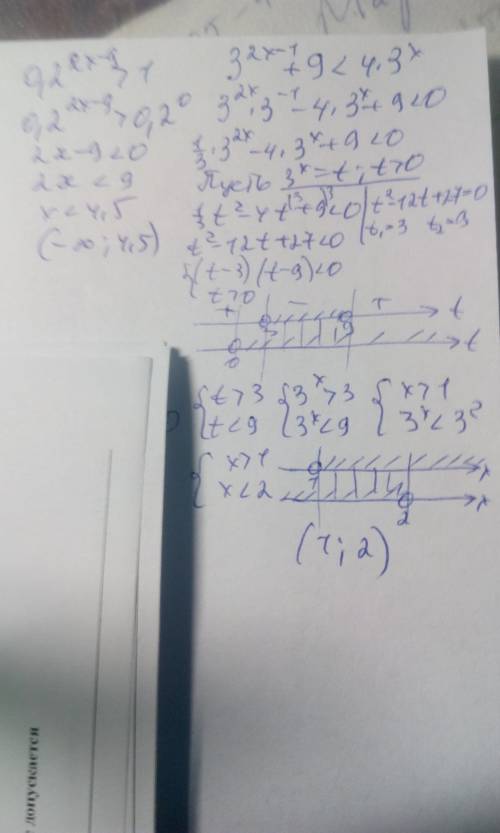 0,2^{2x-9} > 1
0,2^{2x-9} > 0,2^0
2x-9<0
2x<9
x<4,5
(-∞; 4,5)
3^{2x-1}+9<4·3^x
3^{2x}·3^{-1}-4·3^x+9<0
1/3·3^{2x}-4·3^x+9<0
Пусть 3^x=t; t>0
1/3 t²-4t+9<0 |·3
t²-12t+27<0
t²-12t+27=0
t₁=3 t₂=9
{(t-3)(t-9)<0
t>0
+ - + t
3 9
0 t
{t>3 {3^x>3 {x>1
t<9 3^x<9 3^x<3²
{x>1
x<2
1 x
2 x
(1; 2)
допускается